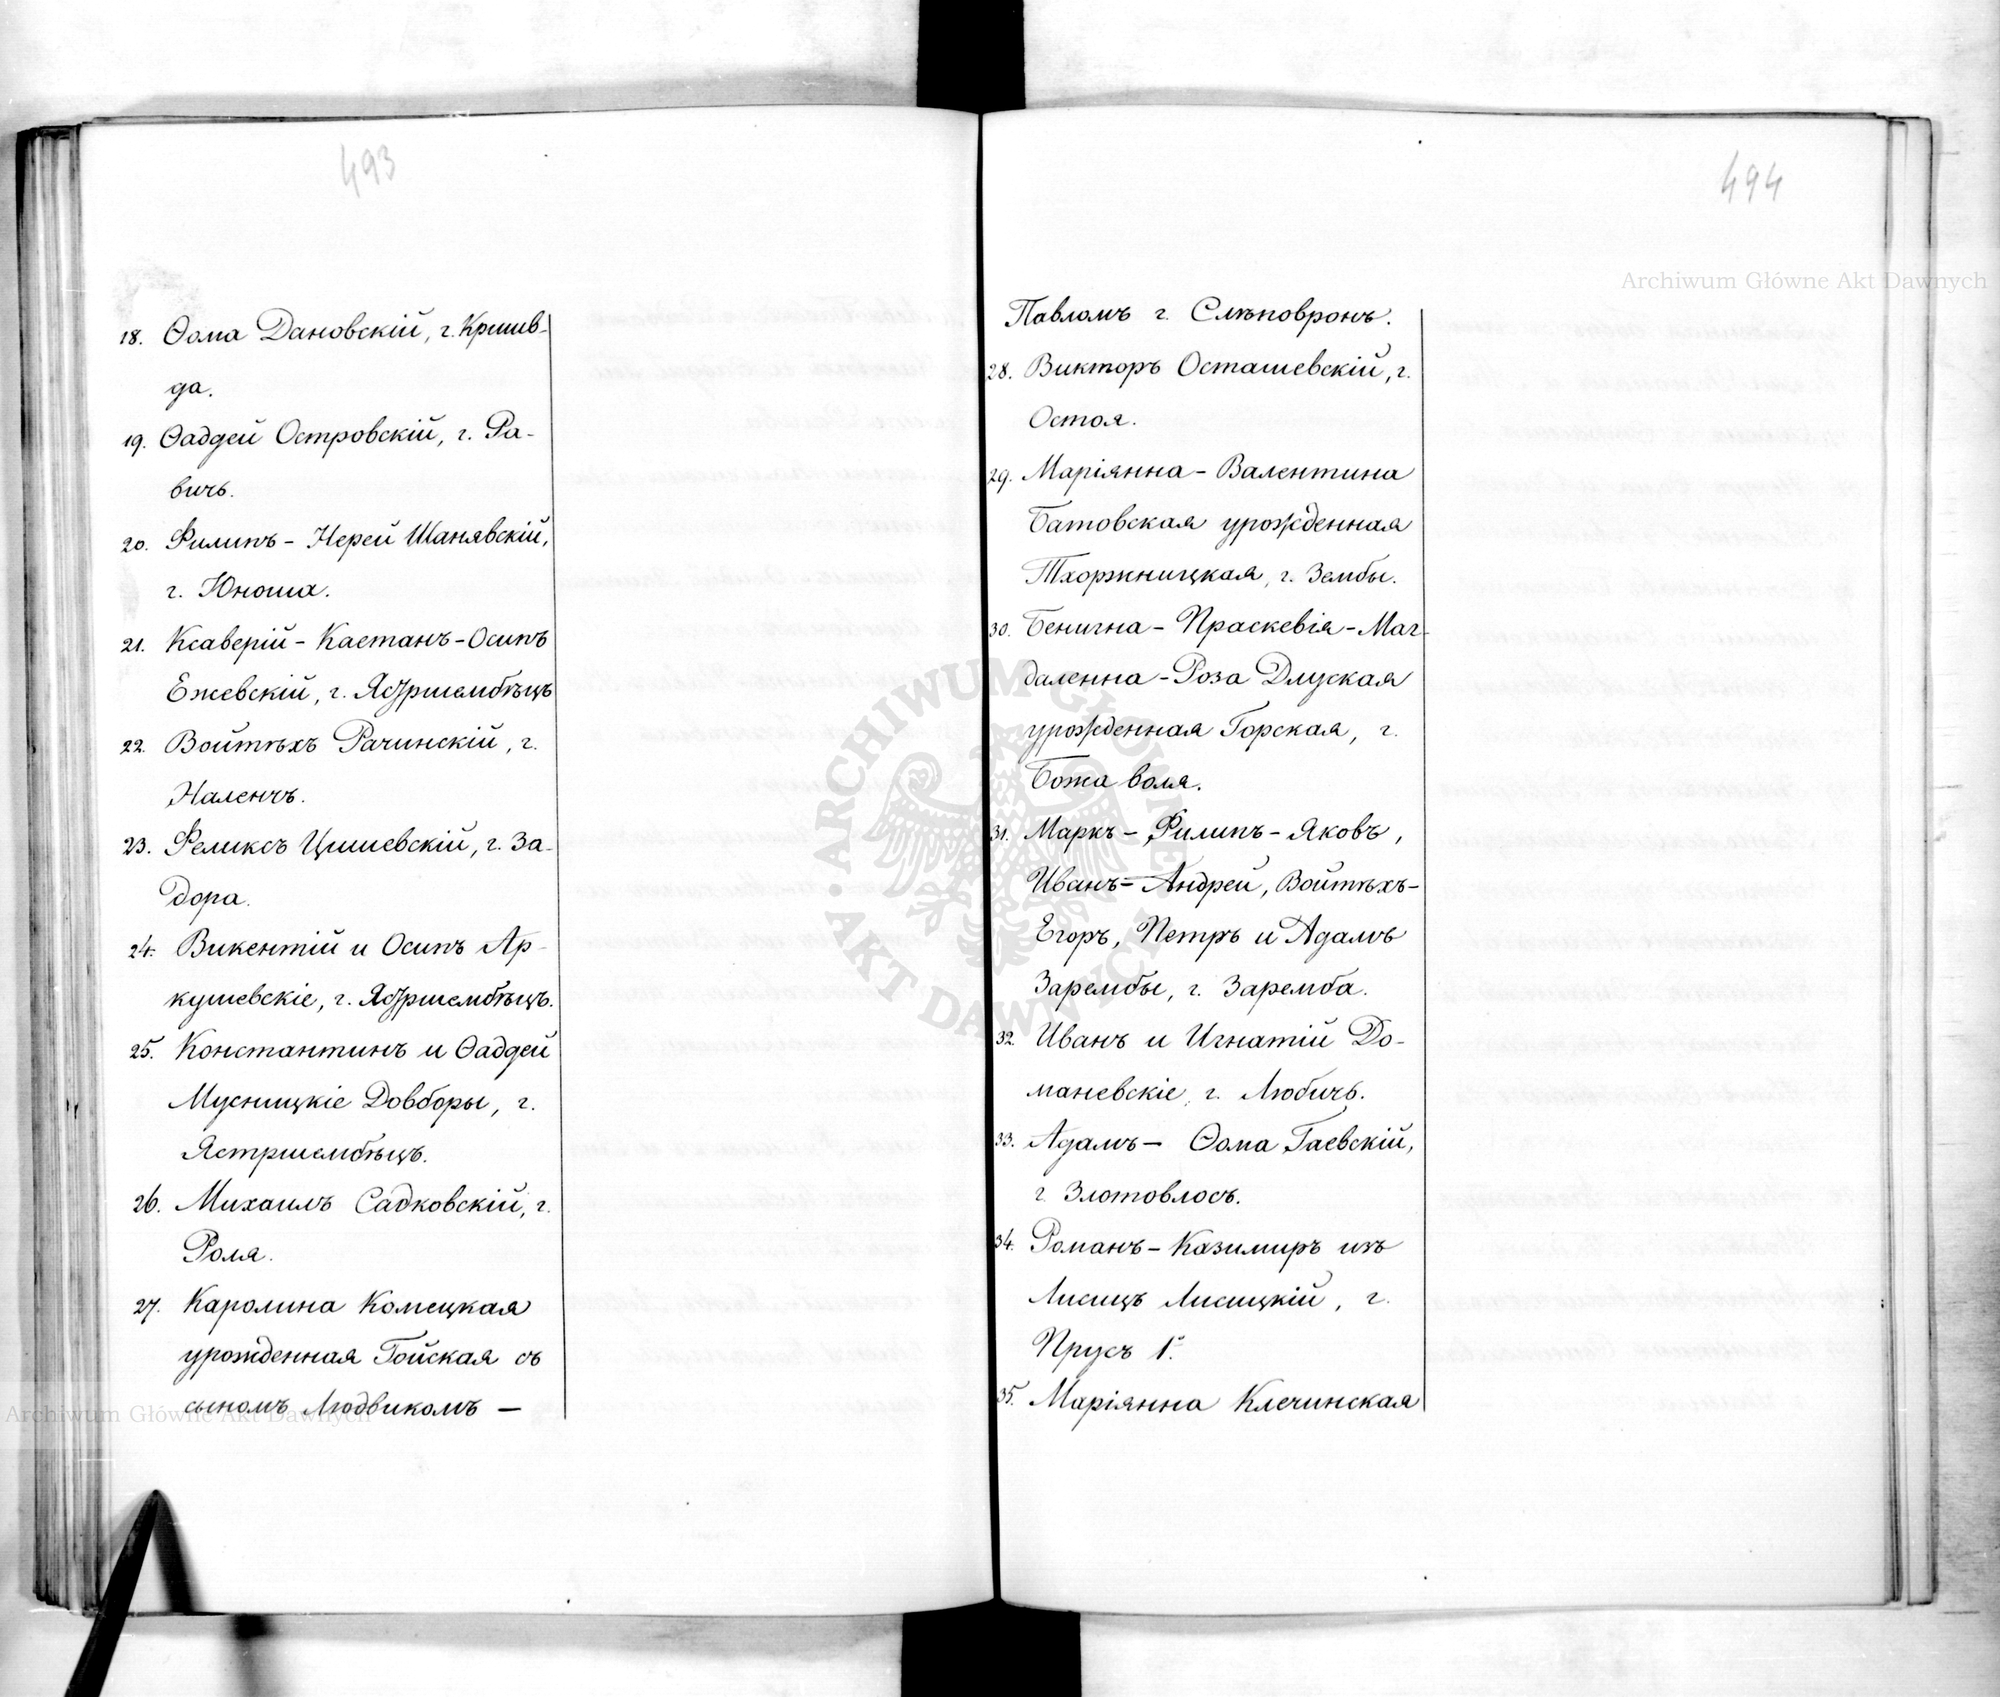 493
18. Ѳома Дановскій, г. Кршив-
да.
19. Ѳаддей Островскій, г. Ра-
вичъ.
20. Филипъ - Нерей Шанявскій,
г. Юноша.
21. Ксаверій - Каетанъ - Осипъ
Ежевскій, г. Ястршембѣцъ
22. Войтѣхъ Рачинскій, г.
Наленчъ.
23. Феликсъ Цишевскій, г. За-
дора.
24. Викентій и Осипъ Ар-
кушевскіе, г. Ястршембѣцъ.
25. Константинъ и Ѳаддей
Мусницкіе Довборы, г.
Ястршембѣцъ.
26. Михаилъ Садковскій, г.
Роля.
27. Каролина Комецкая
урожденная Гойская съ
сыномъ Людвикомъ —
494
Павломъ г. Слѣповронъ.
28. Викторъ Осташевскій, г.
Остоя.
29. Маріянна - Валентина
Батовская урожденная
Тхоржницкая, г. Зембы.
30. Бенигна - Праскевія - Маг-
даленна - Роза Длуская
урожденная Горская, г.
Божа воля.
31. Маркъ - Филипъ - Яковъ,
Иванъ - Андрей, Войтѣхъ -
Егоръ, Петръ и Адамъ
Зарембы, г. Заремба.
32. Иванъ и Игнатій До-
маневскіе, г. Любичъ.
33. Адамъ — Ѳома Гаевскій,
г. Злотовлосъ.
34. Романъ - Казимиръ изъ
Лисицъ Лисицкій, г.
Прусъ 1.
35. Маріянна Клечинская
Archiwum Główne Akt Dawnych
Archiwum Główne Akt Dawnych
ARCHIWUM GŁÓWNE • AKT DAWNYCH •